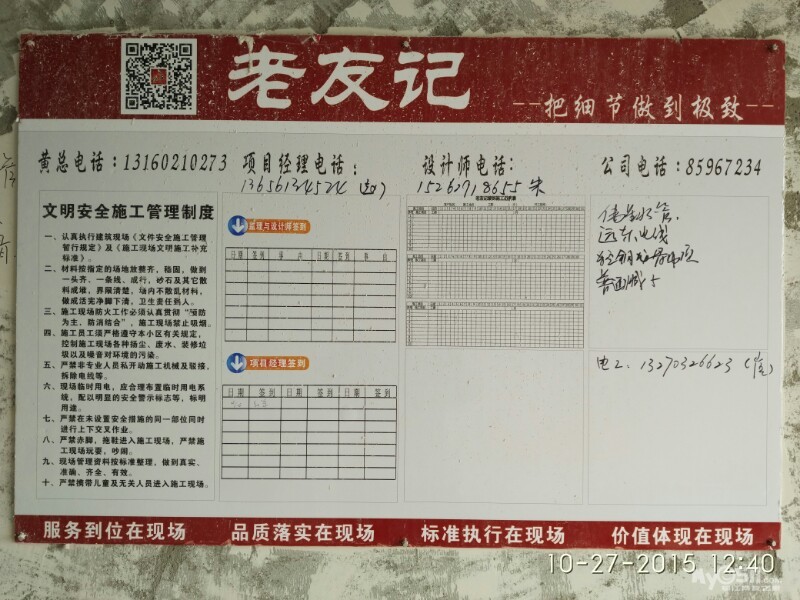 老友记
--把细节做到极致--
黄总电话：13160210273
项目经理电话：
设计师电话：
公司电话：85967234
15260718655 朱
文明安全施工管理制度
一、认真执行建筑现场《文件安全施工管理
暂行规定》及《施工现场文明施工补充
标准》。
二、材料按指定的场地放整齐，稳固，做到
一头齐、一条线、成行，砂石及其它散
料成堆，界限清楚，场内不散乱材料，
做成活完净脚下清，卫生责任到人。
三、施工现场防火工作必须认真贯彻“预防
为主，防消结合”，施工现场禁止吸烟。
四、施工员工须严格遵守本小区有关规定，
控制施工现场各种扬尘、废水、装修垃
圾以及噪音对环境的污染。
五、严禁非专业人员私开动施工机械及驳接、
拆除电线等。
六、现场临时用电，应合理布置临时用电系
统、配以明显的安全警示标志等，标明
用途。
七、严禁在未设置安全措施的同一部位同时
进行上下交叉作业。
八、严禁赤脚，拖鞋进入施工现场，严禁施
工现场玩耍，吵闹。
九、现场管理资料按标准整理，做到真实、
准确、齐全、有效。
十、严禁携带儿童及无关人员进入施工现场。
监理与设计师签到
日期 签到 事由 日期 签到 事由
项目经理签到
日期 签到 日期 签到 日期 签到
远东电线
电工：13270326623
服务到位在现场
品质落实在现场
标准执行在现场
价值体现在现场
10-27-2015 12:40